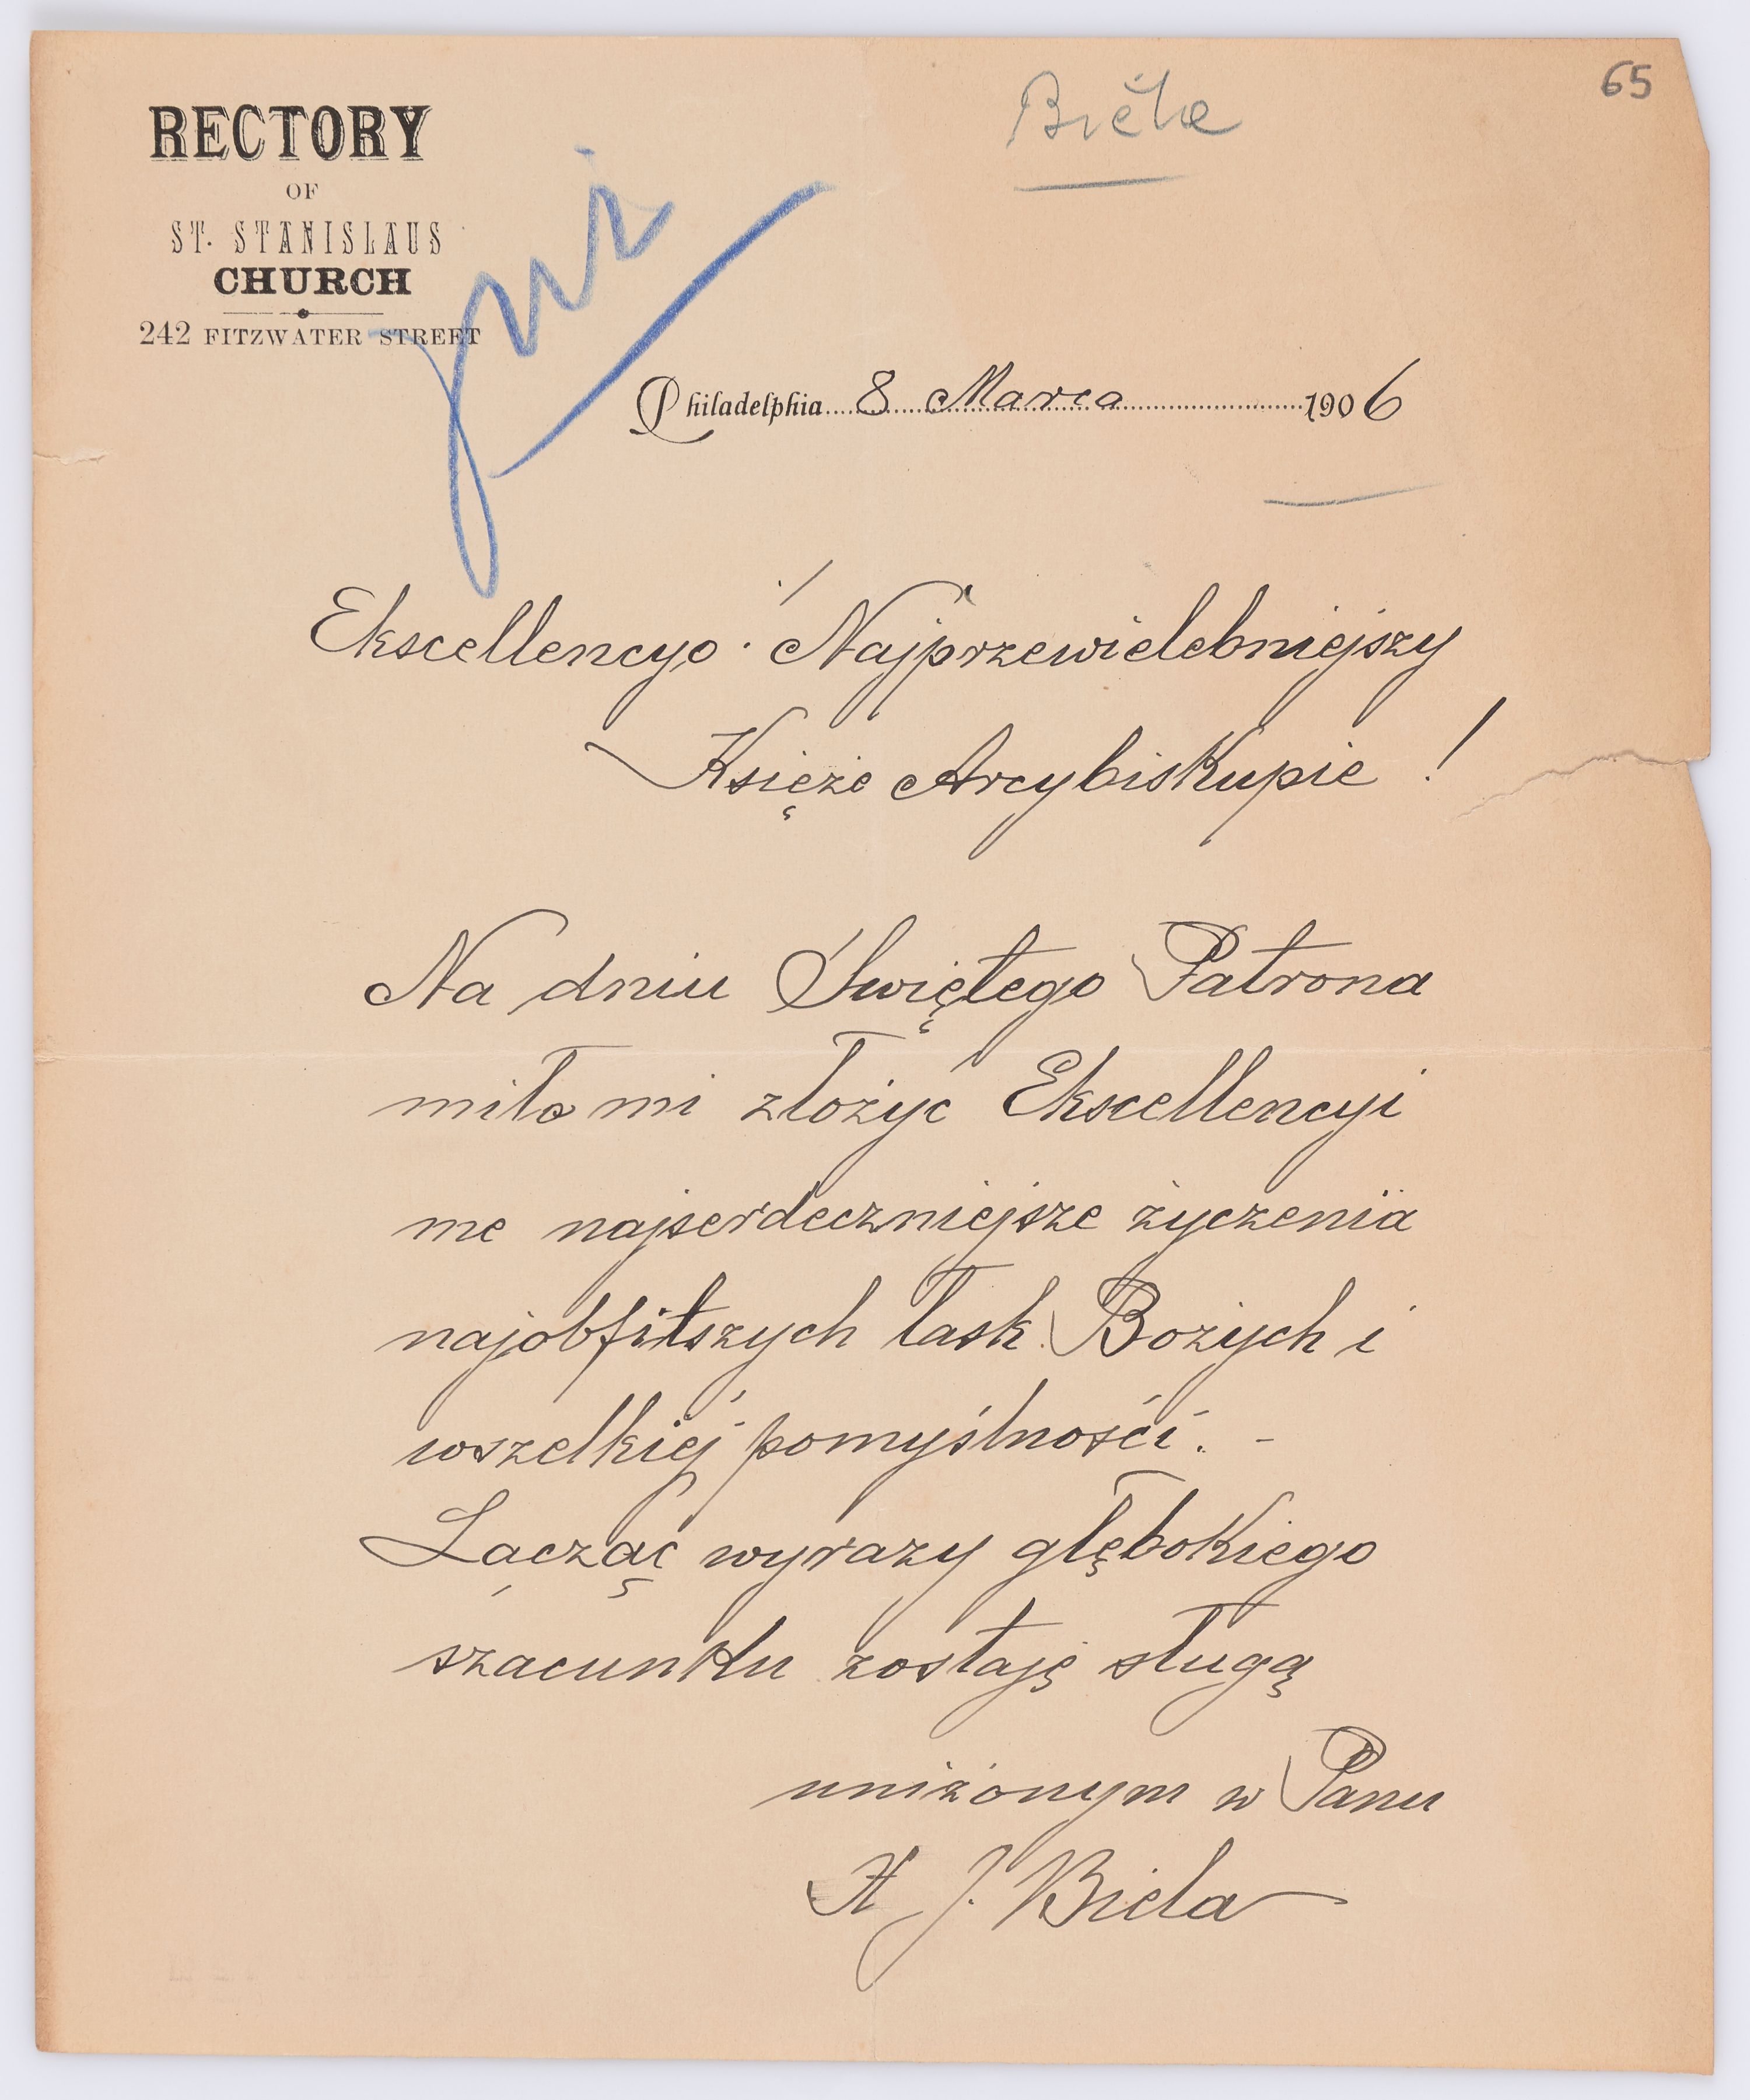 65
RECTORY
OF
ST. STANISLAUS
CHURCH
242 FITZWATER STREET
już
Philadelphia 8 Marca 1906
Ekscellencyo! Najprzewielebniejszy
Księże Arcybiskupie!
Na dniu Świętego Patrona
miło mi złożyć Ekscellencyi
me najserdeczniejsze życzenia
najobfitszych łask Bożych i
wszelkiej pomyślności. -
Łącząc wyrazy głębokiego
szacunku zostaję sługą
uniżonym w Panu
X J. Biela